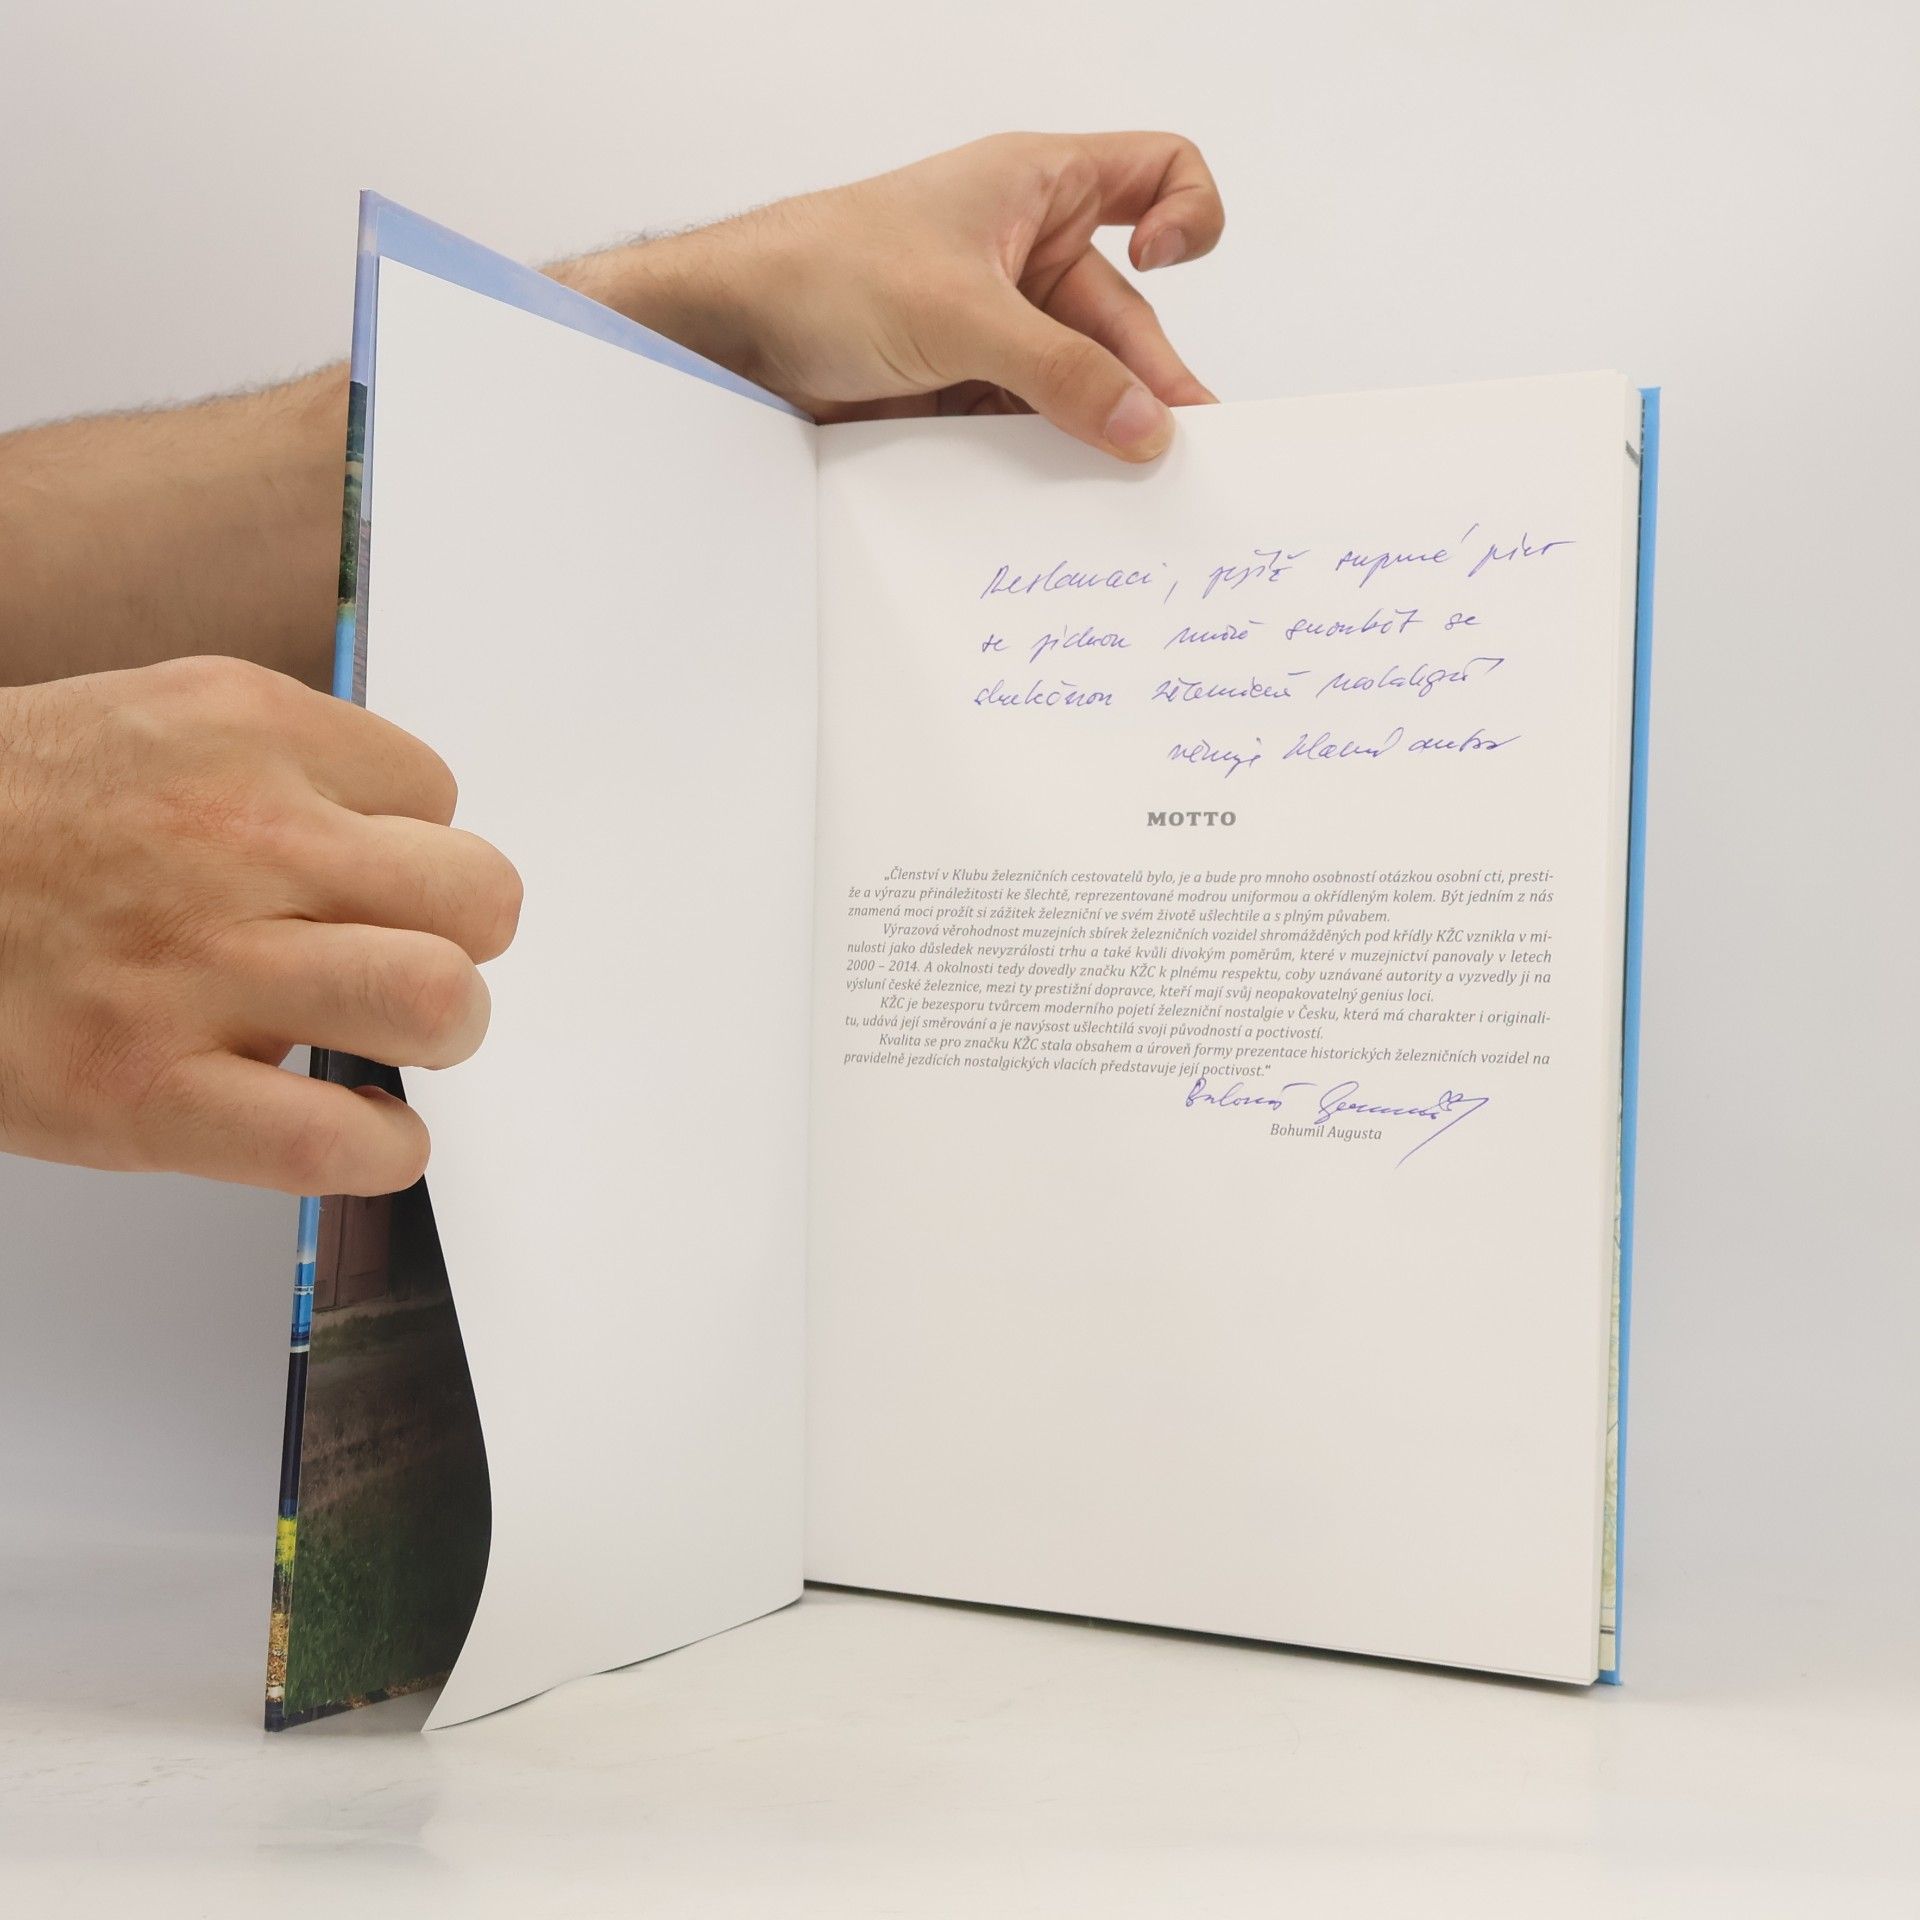 Restauraci, jejíž supmé pivo
se jídlem může snoubit se
skutečnou železniční nostalgií
věnuje hlavní autor
MOTTO
„Členství v Klubu železničních cestovatelů bylo, je a bude pro mnoho osobností otázkou osobní cti, presti-
že a výrazu přináležitosti ke šlechtě, reprezentované modrou uniformou a okřídleným kolem. Být jedním z nás
znamená moci prožít si zážitek železniční ve svém životě ušlechtile a s plným půvabem.
Výrazová věrohodnost muzejních sbírek železničních vozidel shromážděných pod křídly KŽC vznikla v mi-
nulosti jako důsledek nevyzrálosti trhu a také kvůli divokým poměrům, které v muzejnictví panovaly v letech
2000 – 2014. A okolnosti tedy dovedly značku KŽC k plnému respektu, coby uznávané autority a vyzvedly ji na
výsluní české železnice, mezi ty prestižní dopravce, kteří mají svůj neopakovatelný genius loci.
KŽC je bezesporu tvůrcem moderního pojetí železniční nostalgie v Česku, která má charakter i originali-
tu, udává její směrování a je navýsost ušlechtilá svoji původností a poctivostí.
Kvalita se pro značku KŽC stala obsahem a úroveň formy prezentace historických železničních vozidel na
pravidelně jezdících nostalgických vlacích představuje její poctivost.“
Bohumil Augusta